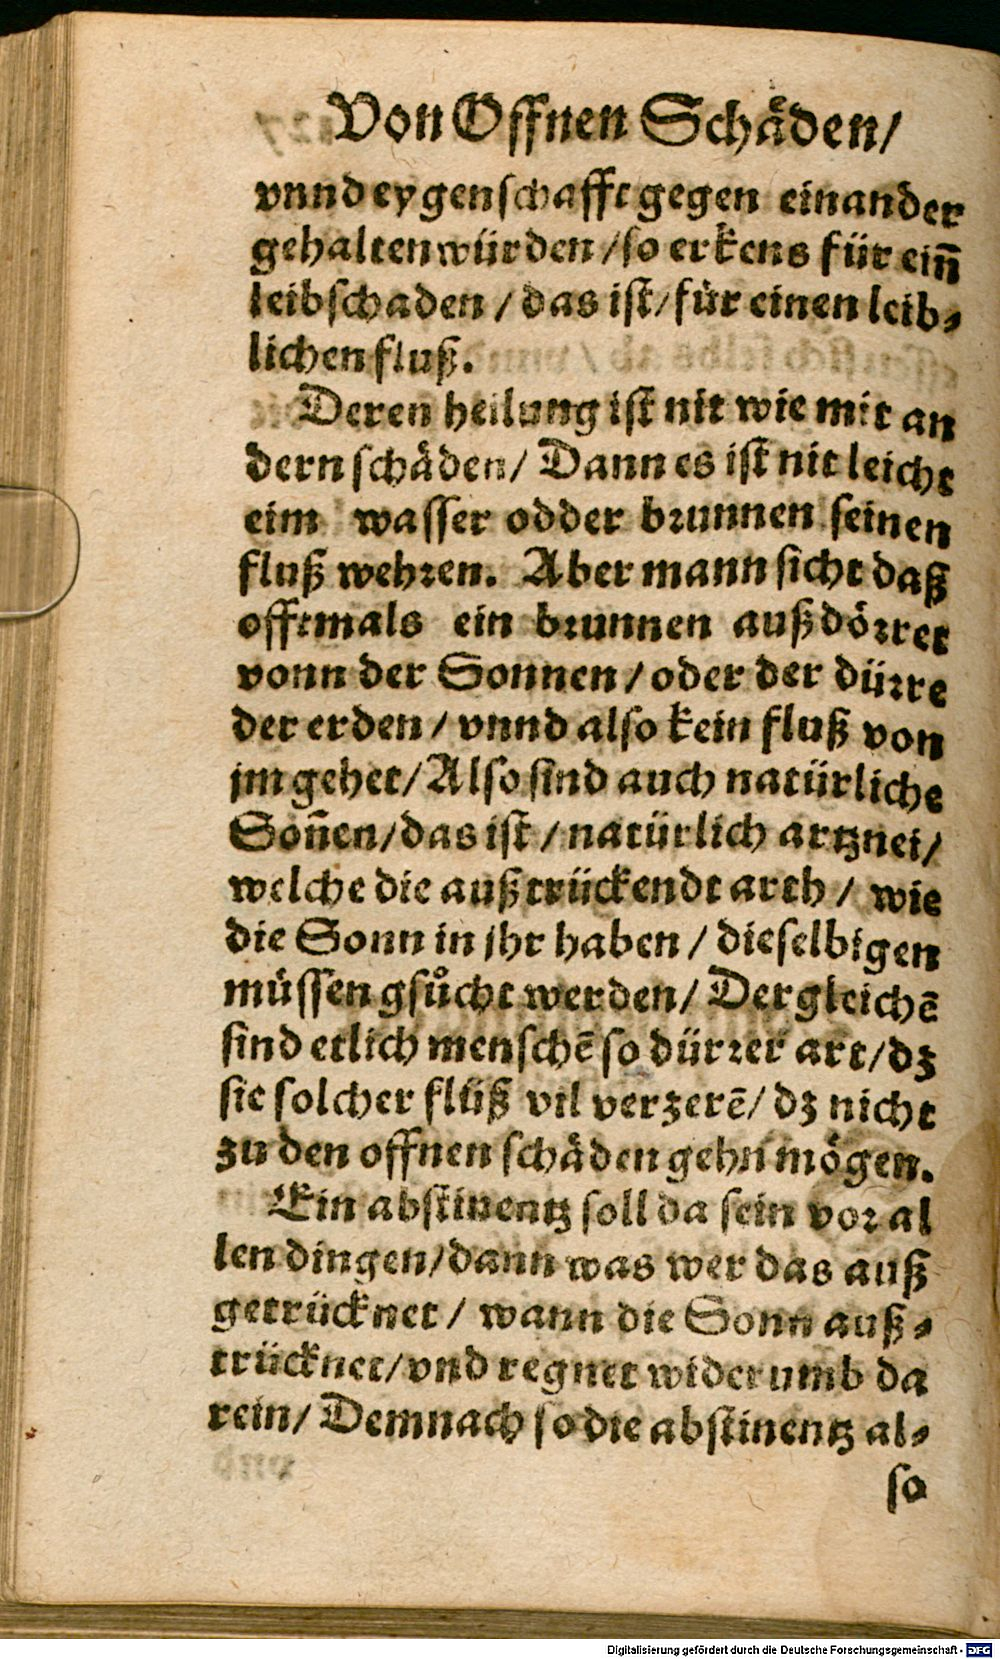 Von Offnen Schäden/
vnnd eygenschafft gegen einander
gehalten würden/so erkens für ein̄
leibschaden/das ist/für einen leib⸗
lichen fluß.
Deren heilung ist nit wie mit an
dern schäden/ Dann es ist nit leicht
eim wasser odder brunnen seinen
fluß wehren. Aber mann sicht daß
offtmals ein brunnen außdörret
vonn der Sonnen/oder der dürre
der erden/vnnd also kein fluß von
jm gehet/Also sind auch natürliche
Son̄en/das ist/natürlich artznei/
welche die außtrückendt arth/ wie
die Sonn in jhr haben/dieselbigen
müssen gsůcht werden/ Dergleichē
sind etlich menschē so dürrer art/dz
sie solcher flüß vil verzerē/ dz nicht
zu den offnen schäden gehn mögen.
Ein abstinentz soll da sein vor al
len dingen/dann was wer das auß
getrücknet/ wann die Sonn auß⸗
trücknet/vnd regnet widerumb da
rein/ Demnach so die abstinentz al⸗
so
Digitalisierung gefördert durch die Deutsche Forschungsgemeinschaft - DFG